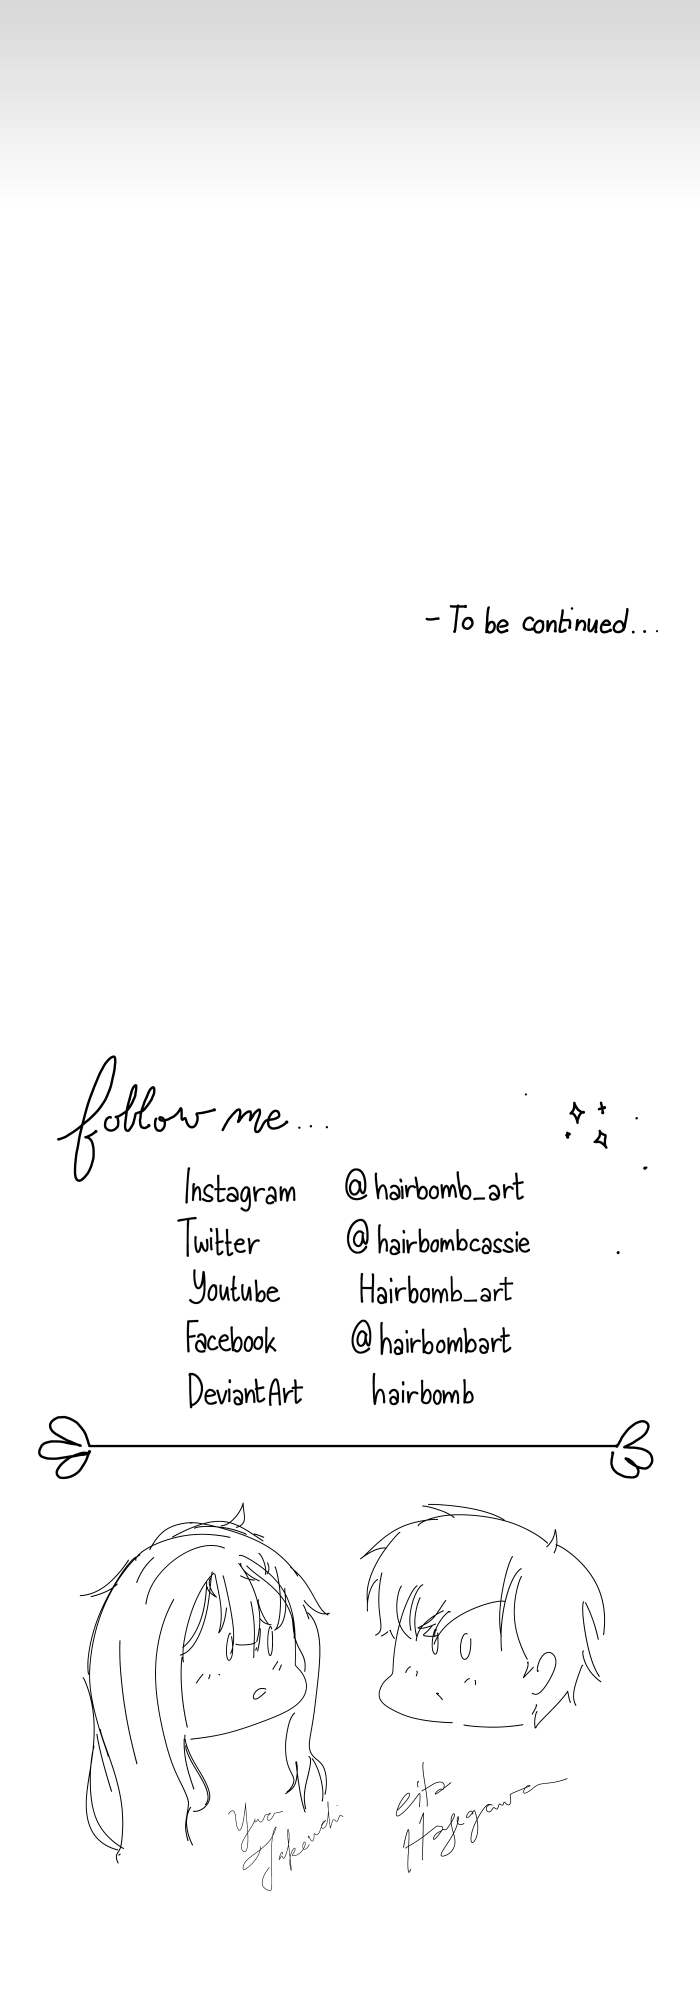 - To be continued...
follow me...
Instagram @hairbomb_art
Twitter @hairbombcassie
Youtube Hairbomb_art
Facebook @hairbombart
DeviantArt hairbomb
Takeuchi
eita
Hasegawa